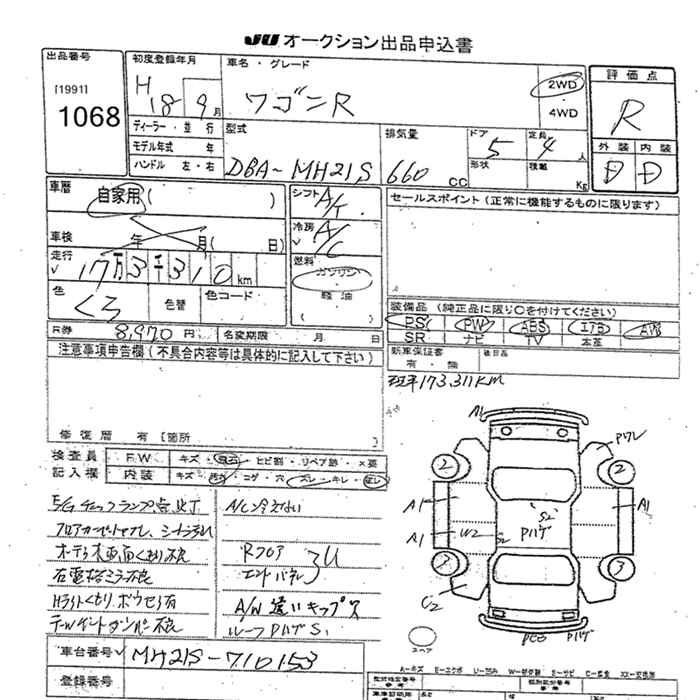 JU オークション出品申込書
出品番号
[1991]
1068
初度登録年月
H18 9月
車名・グレード
ワゴンR
2WD
・
4WD
評価点
R
外装 内装
D D
ディーラー・並行
モデル年式 年
ハンドル 左・右
型式
DBA-MH21S
排気量
660 CC
ドア
5
定員
4人
形状
積載
Kg
車歴
自家用( )
車検
年 月( 日)
走行
17万3千310km
色
くろ
色替
色コード
シフト
A/T
冷房
A/C
燃料
ガソリン
軽油
( )
セールスポイント (正常に機能するものに限ります)
装備品 (純正品に限り○を付けてください)
PS PW ABS エアB AW
SR ナビ TV 本革
新車保証書
有・無
後日品
R券 8,970円
名変期限 月 日
注意事項申告欄(不具合内容等は具体的に記入して下さい)
173,311KM
修復歴 有 [箇所 ]
検査員
記入欄
F.W キズ・飛石・ヒビ割・リペア跡・×要
内装 キズ・汚れ・コゲ・穴・スレ・キレ・
E/Gチェックランプ点灯
A/C冷えない
フロアカーペットヤブレ、シート
Rフロア
不良
エンドパネル
右電格ミラー不良
Hライトくもり
A/W違い キップス
不良
ルーフPハゲS1
A1
Pワレ
2
2
A1
A1
A1
W2
S2
S2
Pハゲ
3
3
C2
Pハゲ
スペア
車台番号
MH21S-710153
登録番号
A-キズ E-エクボ U-凹み W-補修跡 S-サビ C-腐食 XX-交換済